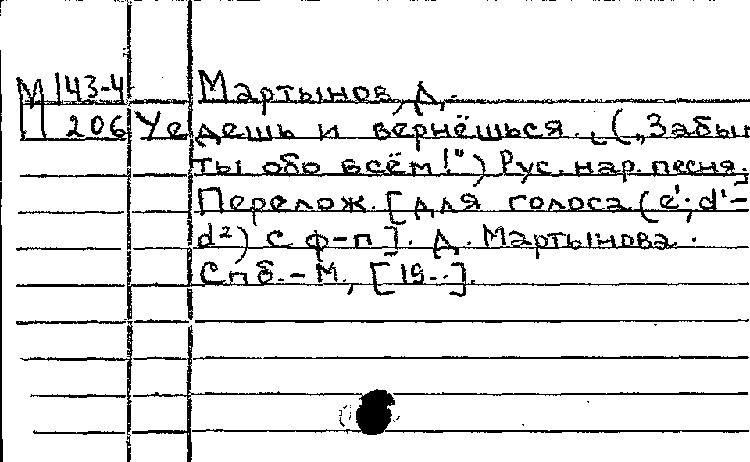 М 143-4 Мартынов, Д.
206 Уедешь и вернёшься. („Забыл
ты обо всём!") Рус. нар. песня.
Перелож. [для голоса (e'; d'-
d²) с ф-п]. Д. Мартынова.
Спб. - М., [19..].